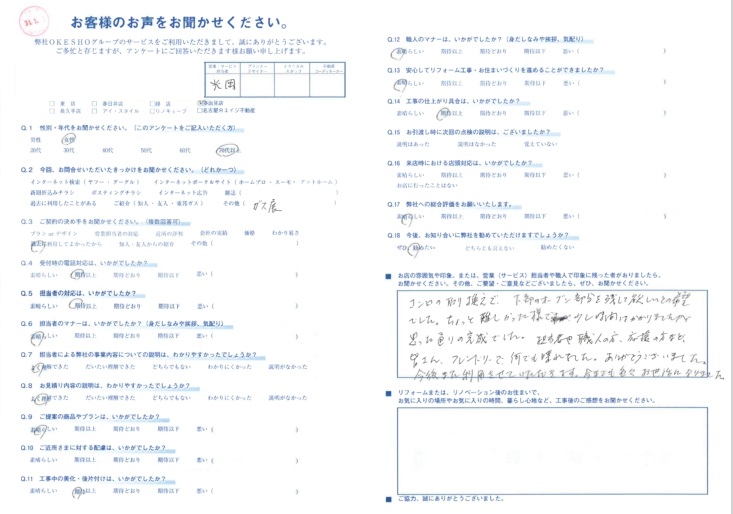 お客様のお声をお聞かせください。
弊社OKESHOグループのサービスをご利用いただきまして、誠にありがとうございます。
ご多忙と存じますが、アンケートにご回答いただきます様お願い申し上げます。
営業・サービス担当者
プランナーデザイナー
トータルスタッフ
不動産コーディネーター
Q.1 性別・年代をお聞かせください。(このアンケートをご記入いただく方)
男性 女性
20代 30代 40代 50代 60代 70代以上
Q.2 今回、お問合せいただいたきっかけをお聞かせください。(どれか一つ)
インターネット検索(ヤフー・グーグル) インターネットポータルサイト(ホームプロ・スーモ・アットホーム)
新聞折込みチラシ ポスティングチラシ インターネット広告 雑誌( )
過去に利用したことがある ご紹介(知人・友人・東邦ガス) その他( ガス展
Q.3 ご契約の決め手をお聞かせください。(複数回答可)
プラン or デザイン 営業担当者の対応 近所の評判 会社の実績 価格 わかり易さ
過去に利用してよかったから 知人・友人からの紹介 その他( )
Q.4 受付時の電話対応は、いかがでしたか?
素晴らしい 期待以上 期待どおり 期待以下 悪い( )
Q.5 担当者の対応は、いかがでしたか?
素晴らしい 期待以上 期待どおり 期待以下 悪い( )
Q.6 担当者のマナーは、いかがでしたか?(身だしなみや挨拶、気配り)
素晴らしい 期待以上 期待どおり 期待以下 悪い( )
Q.7 担当者による弊社の事業内容についての説明は、わかりやすかったでしょうか?
よく理解できた だいたい理解できた どちらでもない わかりにくかった 説明がなかった
Q.8 お見積り内容の説明は、わかりやすかったでしょうか?
よく理解できた だいたい理解できた どちらでもない わかりにくかった 説明がなかった
Q.9 ご提案の商品やプランは、いかがでしたか?
素晴らしい 期待以上 期待どおり 期待以下 悪い( )
Q.10 ご近所さまに対する配慮は、いかがでしたか?
素晴らしい 期待以上 期待どおり 期待以下 悪い( )
Q.11 工事中の美化・後片付けは、いかがでしたか?
素晴らしい 期待以上 期待どおり 期待以下 悪い( )
Q.12 職人のマナーは、いかがでしたか?(身だしなみや挨拶、気配り)
素晴らしい 期待以上 期待どおり 期待以下 悪い( )
Q.13 安心してリフォーム工事・お住まいづくりを進めることができましたか?
素晴らしい 期待以上 期待どおり 期待以下 悪い( )
Q.14 工事の仕上がり具合は、いかがでしたか?
素晴らしい 期待以上 期待どおり 期待以下 悪い( )
Q.15 お引渡し時に次回の点検の説明は、ございましたか?
説明はあった 説明はなかった 覚えていない
Q.16 来店時における店頭対応は、いかがでしたか?
素晴らしい 期待以上 期待どおり 期待以下 悪い( )
お店に行ったことはない
Q.17 弊社への総合評価をお願いいたします。
素晴らしい 期待以上 期待どおり 期待以下 悪い( )
Q.18 今後、お知り合いに弊社を勧めていただけますでしょうか?
ぜひ、勧めたい どちらとも言えない 勧めたくない
■ お店の雰囲気や印象、または、営業(サービス)担当者や職人で印象に残った者がおりましたら、
お聞かせください。その他、ご要望・ご意見などございましたら、ぜひ、お聞かせください。
コンロの取り換えで、下部のオーブン部分を残して欲しいとの希望
でした。ちょっと難しかった様で少し時間はかかりましたが
思った通りの完成でした。担当者や職人の方、応援の方など、
皆さん、フレンドリーで何でも喋れました。ありがとうございました。
今後また利用させていただきます。
■ リフォームまたは、リノベーション後のお住まいで、
お気に入りの場所やお気に入りの時間、暮らし心地など、工事後のご感想をお聞かせください。
■ ご協力、誠にありがとうございました。